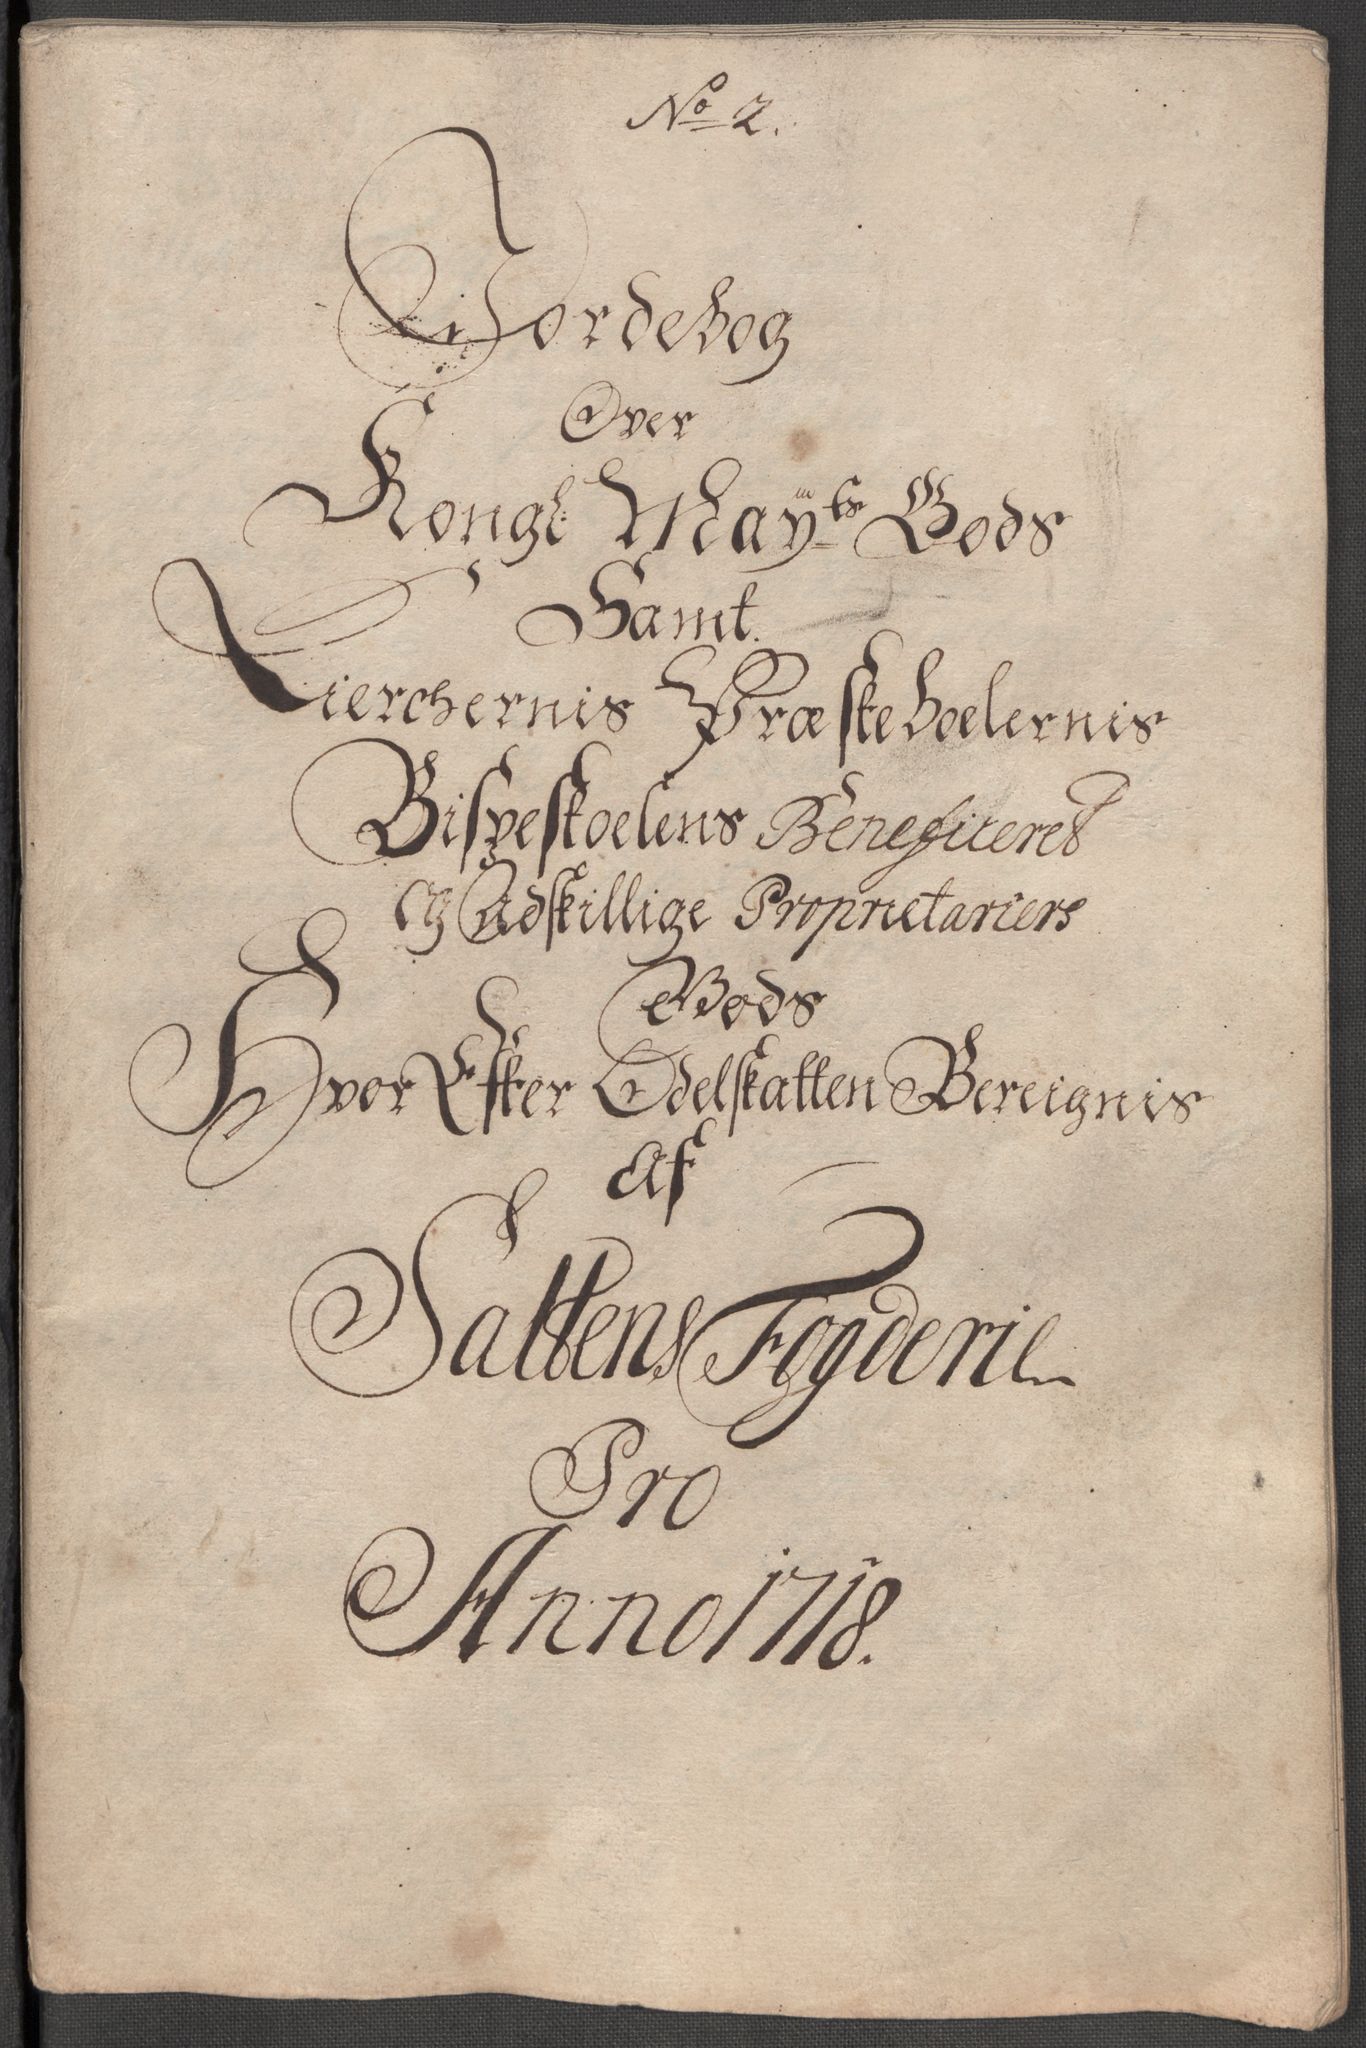 No 2.
Jordebog
Over
Kongl: Mayts Gods
Samt
Kierchernis Præsteboelernis
Bispestoelens Beneficeret
og Adskillige Proprietariers
Gods
Hvor Efter Odelskatten Bereignis
Af
Saltens Fogderie
Pro
Anno 1718.